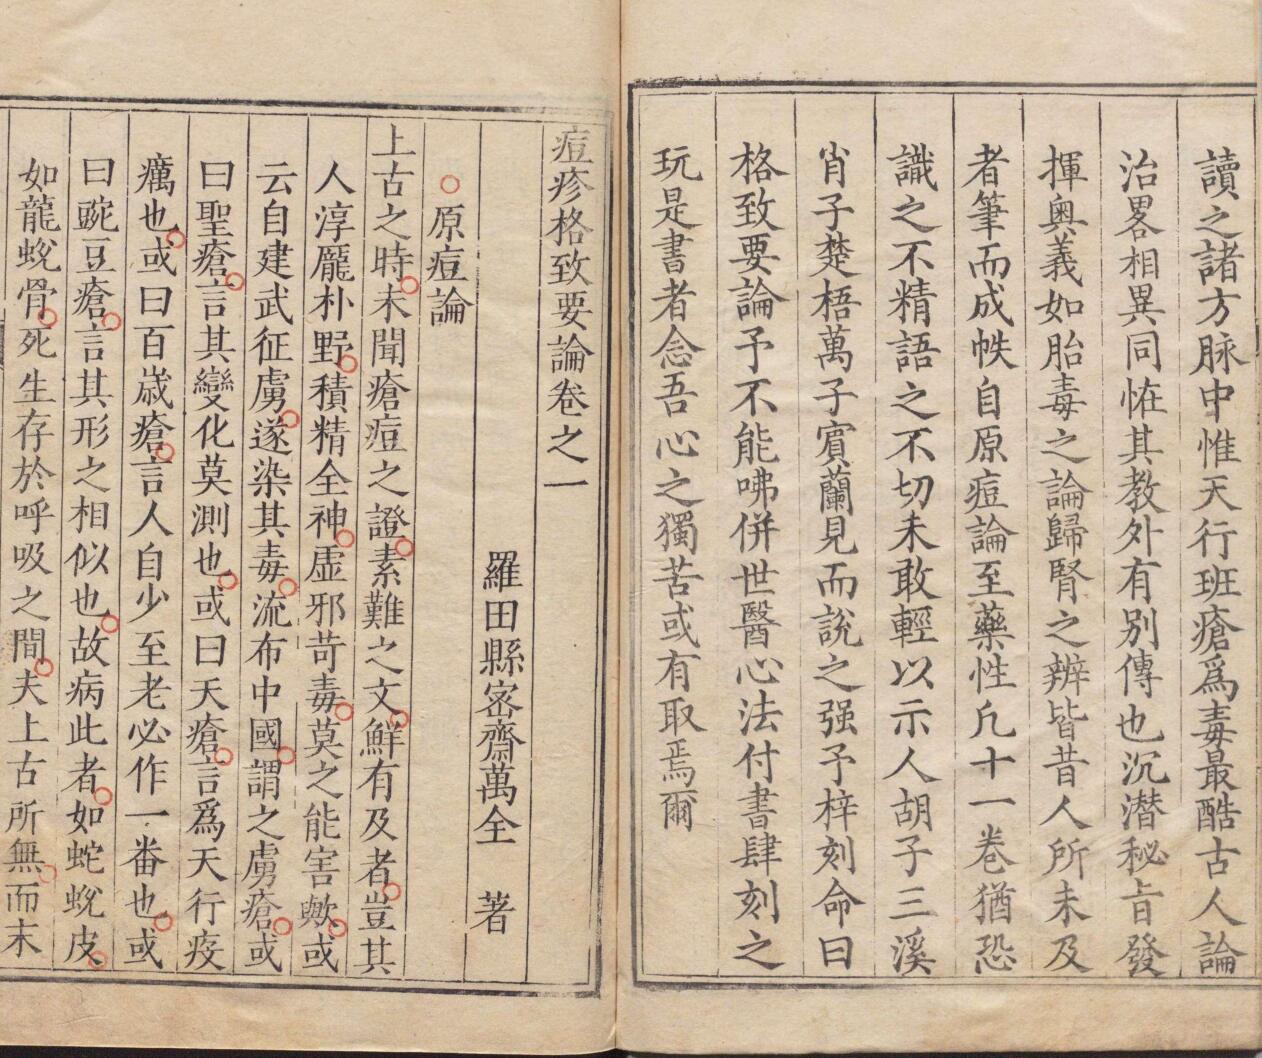 讀之諸方脉中惟天行班瘡爲毒最酷古人論
治畧相異同恠其教外有別傳也沉潜秘旨發
揮奥義如胎毒之論歸腎之辨皆昔人所未及
者筆而成帙自原痘論至藥性凡十一卷猶恐
識之不精語之不切未敢輕以示人胡子三溪
肖子楚梧萬子賓蘭見而說之强予梓刻命曰
格致要論予不能咈併世醫心法付書肆刻之
玩是書者念吾心之獨苦或有取焉爾
痘疹格致要論卷之一
羅田縣宻齋萬全 著
○原痘論
上古之時未聞瘡痘之證素難之文鮮有及者豈其
人淳龐朴野積精全神虛邪苛毒莫之能害歟或
云自建武征虜遂染其毒流布中國謂之虜瘡或
曰聖瘡言其變化莫測也或曰天瘡言爲天行疫
癘也或曰百歲瘡言人自少至老必作一番也或
曰豌豆瘡言其形之相似也故病此者如蛇蛻皮
如龍蛻骨死生存於呼吸之間夫上古所無而末